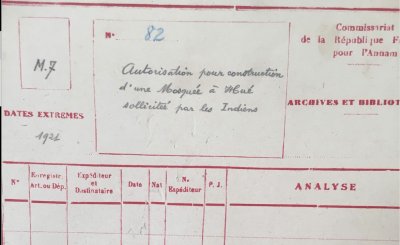 Commissariat
de la République F
pour l'Annam
ARCHIVES ET BIBLIOT
M.7
DATES EXTREMES
1921
N°. 82
Autorisation pour construction
d'une Mosquée à Hué
sollicitée par les Indiens
N° Enregistr. Art. ou Dép. Expéditeur et Destinataire Date Nat N. Expéditeur P. J. ANALYSE